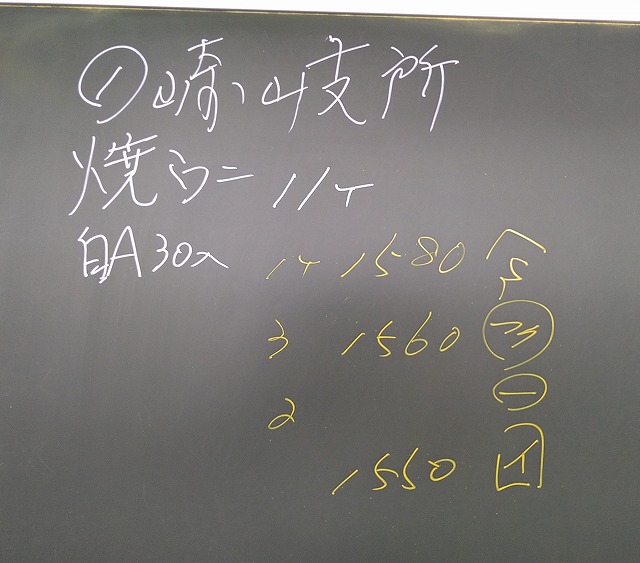 ① 崎、岐支所
焼ウニ 11ケ
白A 30入 14 1580
3 1560
2 ㊀
1550